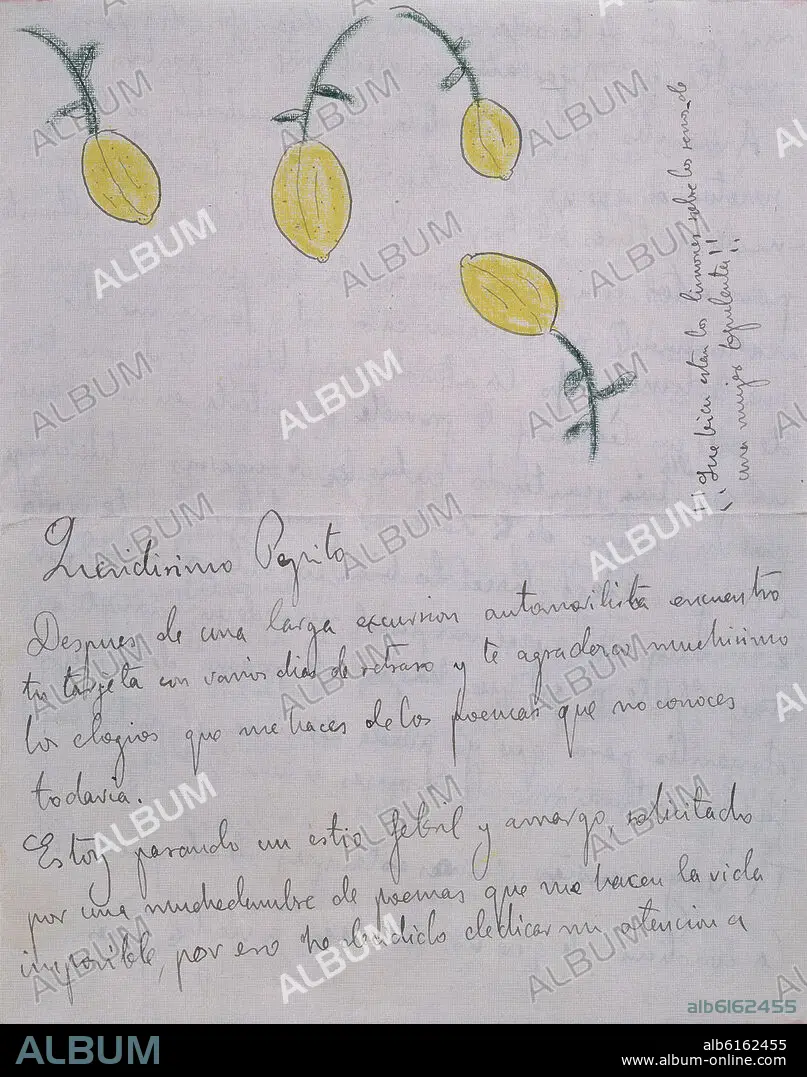 ¡¡Que bien están los limones sobre los senos de
una mujer opulenta!!
Queridisimo Pepito
Despues de una larga excursion automovilista encuentro
tu targeta con varios dias de retraso y te agradezco muchisimo
los elogios que me haces de los poemas que no conoces
todavia.
Estoy pasando un estio febril y amargo, solicitado
por una muchedumbre de poemas que me hacen la vida
imposible, por eso he decidido dedicar mi atencion a
ALBUM
alb6162455
ALBUM
alb6162455
www.album-online.com